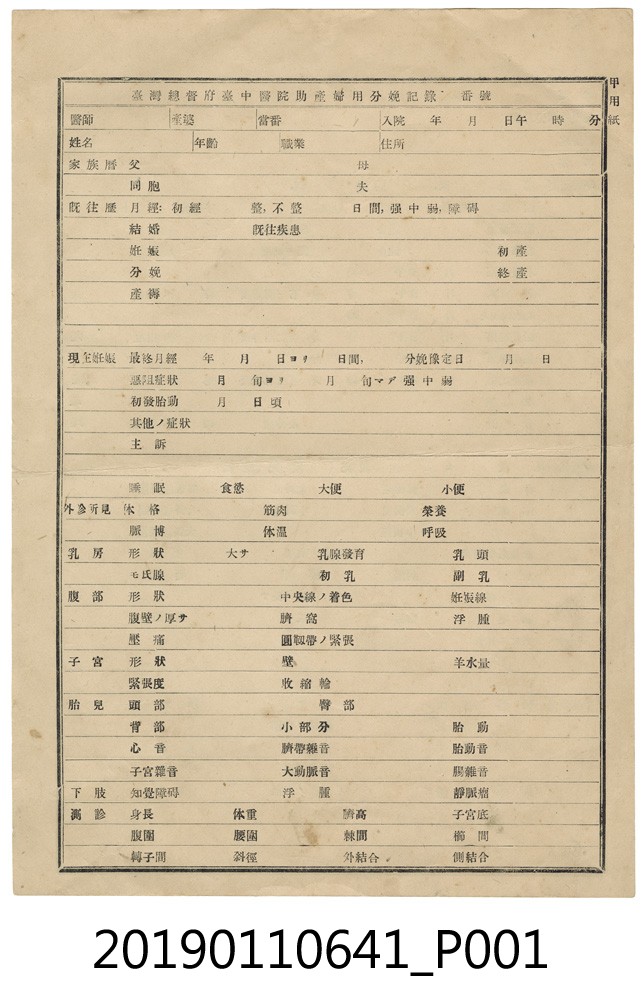 甲用紙
臺灣總督府臺中醫院助產婦用分娩記錄 番號
醫師 產婆 當番 入院 年 月 日午 時 分
姓名 年齡 職業 住所
家族曆 父 母
同胞 夫
既往歷 月經:初經 整,不整 日間,强中弱,障碍
結婚 既往疾患
妊娠 初產
分娩 終產
產褥
現在妊娠 最終月經 年 月 日ヨリ 日間, 分娩豫定日 月 日
惡阻症狀 月 旬ヨリ 月 旬マデ 强中弱
初發胎動 月 日頃
其他ノ症狀
主訴
睡眠 食慾 大便 小便
外診所見 体格 筋肉 榮養
脈博 体温 呼吸
乳房 形狀 大サ 乳腺發育 乳頭
モ氏腺 初乳 副乳
腹部 形狀 中央線ノ着色 妊娠線
腹壁ノ厚サ 臍窩 浮腫
壓痛 圓靱帶ノ緊張
子宮 形狀 壁 羊水量
緊張度 收縮輪
胎兒 頭部 臀部
背部 小部分 胎動
心音 臍帶雜音 胎動音
子宮雜音 大動脈音 腸雜音
下肢 知覺障碍 浮腫 靜脈瘤
測診 身長 体重 臍高 子宮底
腹圍 腰圍 棘間 櫛間
轉子間 斜徑 外結合 側結合
20190110641_P001